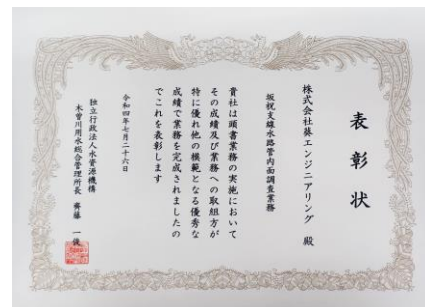 表彰状
株式会社葵エンジニアリング 殿
坂祝支線水路管内面調査業務
貴社は頭書業務の実施において
その成績及び業務への取組方が
特に優れ他の模範となる優秀な
成績で業務を完成されましたの
でこれを表彰します
令和四年七月二十六日
独立行政法人水資源機構
木曽川用水総合管理所長 齊藤 一俊